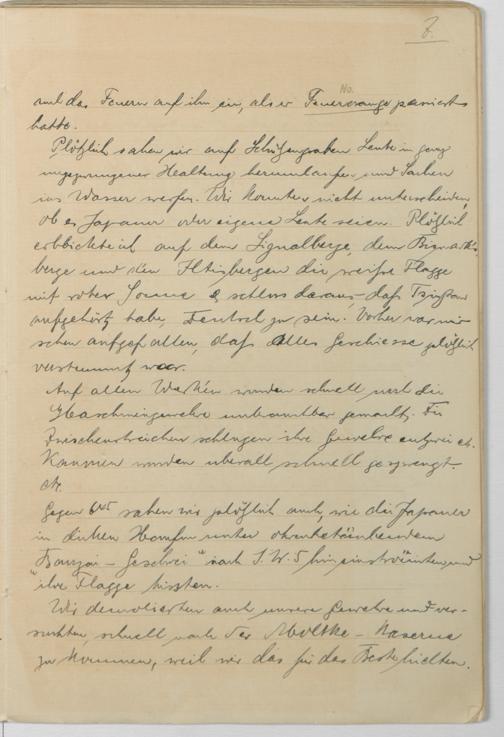 7.
No.
und das Feuern auf ihn ein, als er Feuerorange passierte
hatte.
Plötzlich sahen wir auf Leute in ganz
ungezwungener Haltung herumlaufen und Sachen
ins Wasser werfen. Wir konnten nicht unterscheiden,
ob es Japaner oder eigene Leute seien. Plötzlich
erblickte ich auf dem Signalberge, dem Bismarck-
berge und den Iltisbergen die weisse Flagge
mit roter Sonne & schloss daraus, dass Tsingtau
aufgehört habe, Deutsch zu sein. Vorher war mir
schon aufgefallen, dass alles Geschiesse plötzlich
verstummt war.
Auf allen Werken wurden schnell noch die
Maschinengewehre unbrauchbar gemacht. Die
schlugen ihre Gewehre entzwei etc.
Kanonen wurden überall schnell gesprengt.
etc.
Gegen 6 45 sahen wir plötzlich auch, wie die Japaner
in dicken Haufen unter ohrenbetäubendem
„Banzai-Geschrei" nach I.W.5 hineinströmten und
ihre Flagge hissten.
Wir demolierten auch unsere Gewehre und ver-
suchten schnell nach der Moltke-Kaserne
zu kommen, weil wir das für das Beste hielten.